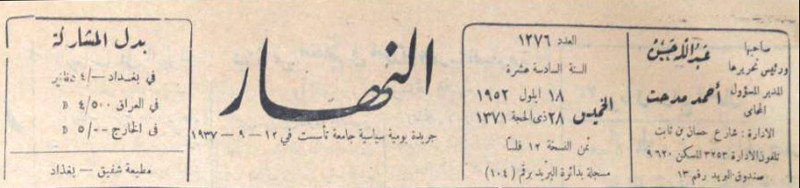 صاحبها
ورئيس تحريرها
عبد الله حسن
المدير المسؤول
أحمد مدحت
المحامي
الادارة : شارع حسان بن ثابت
تلفون الادارة ٣٢٥٣ المسكن ٩٦٢٠
صندوق البريد رقم ١٣
العدد ١٣٧٦
السنة السادسة عشرة
الخميس
١٨ ايلول ١٩٥٢
٢٨ ذي الحجة ١٣٧١
ثمن النسخة ١٢ فلسا
مسجلة بدائرة البريد برقم (١٠٤)
النهار
جريدة يومية سياسية جامعة تأسست في ١٢ – ٩ – ١٩٣٧
بدل المشاركة
في بغداد ٤/– دنانير
في العراق ٤/٥٠٠ »
في الخارج ٥/٠٠ »
مطبعة شفيق – بغداد